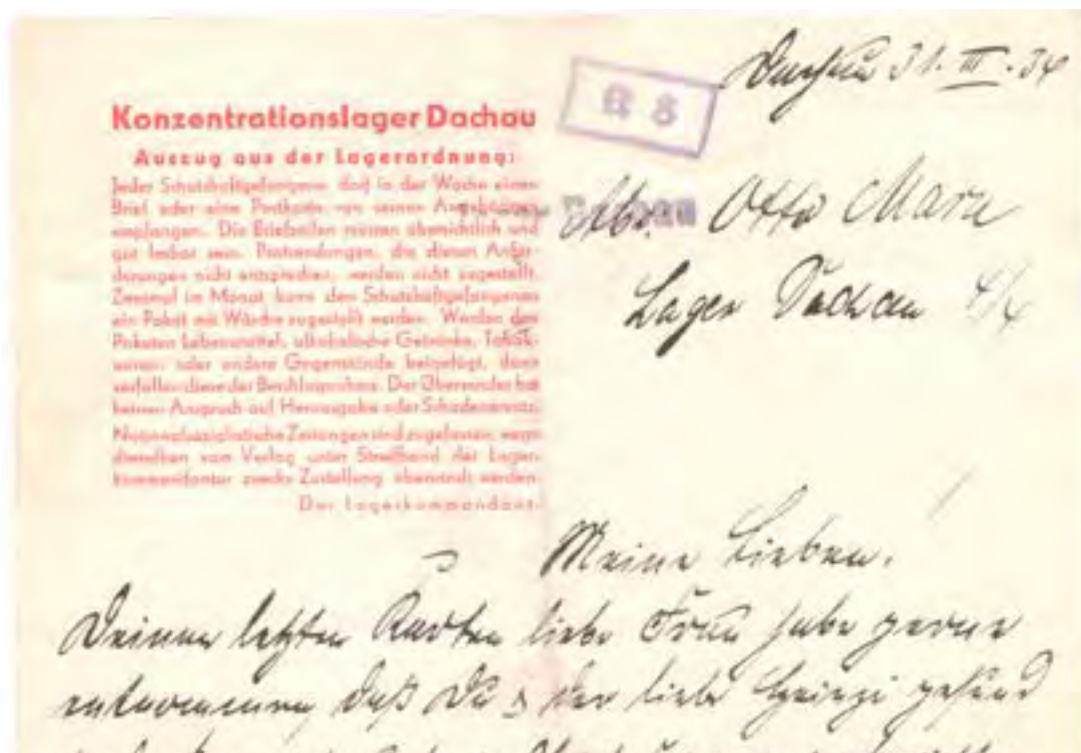 Dachau 31. III. 34
K 3
Konzentrationslager Dachau
Auszug aus der Lagerordnung:
Jeder Schutzhaftgefangene darf in der Woche einen
Brief oder eine Postkarte von seinen Angehörigen
empfangen. Die Briefzeilen müssen übersichtlich und
gut lesbar sein. Postsendungen, die diesen Anfor-
derungen nicht entsprechen, werden nicht zugestellt.
Zweimal im Monat kann dem Schutzhaftgefangenen
ein Paket mit Wäsche zugestellt werden. Werden den
Paketen Lebensmittel, alkoholische Getränke, Tabak-
waren oder andere Gegenstände beigefügt, dann
verfallen diese der Beschlagnahme. Der Übersender hat
keinen Anspruch auf Herausgabe oder Schadenersatz.
Nationalsozialistische Zeitungen sind zugelassen, wenn
dieselben vom Verlag unter Streifband der Lager-
kommandantur zwecks Zustellung übersandt werden.
Der Lagerkommandant.
Abs. Otto Marx
Lager Dachau 4/4
Meine Lieben!
Deinen letzten Karten liebe Frau habe gerne
entnommen daß Du & der liebe Heinzi gesund